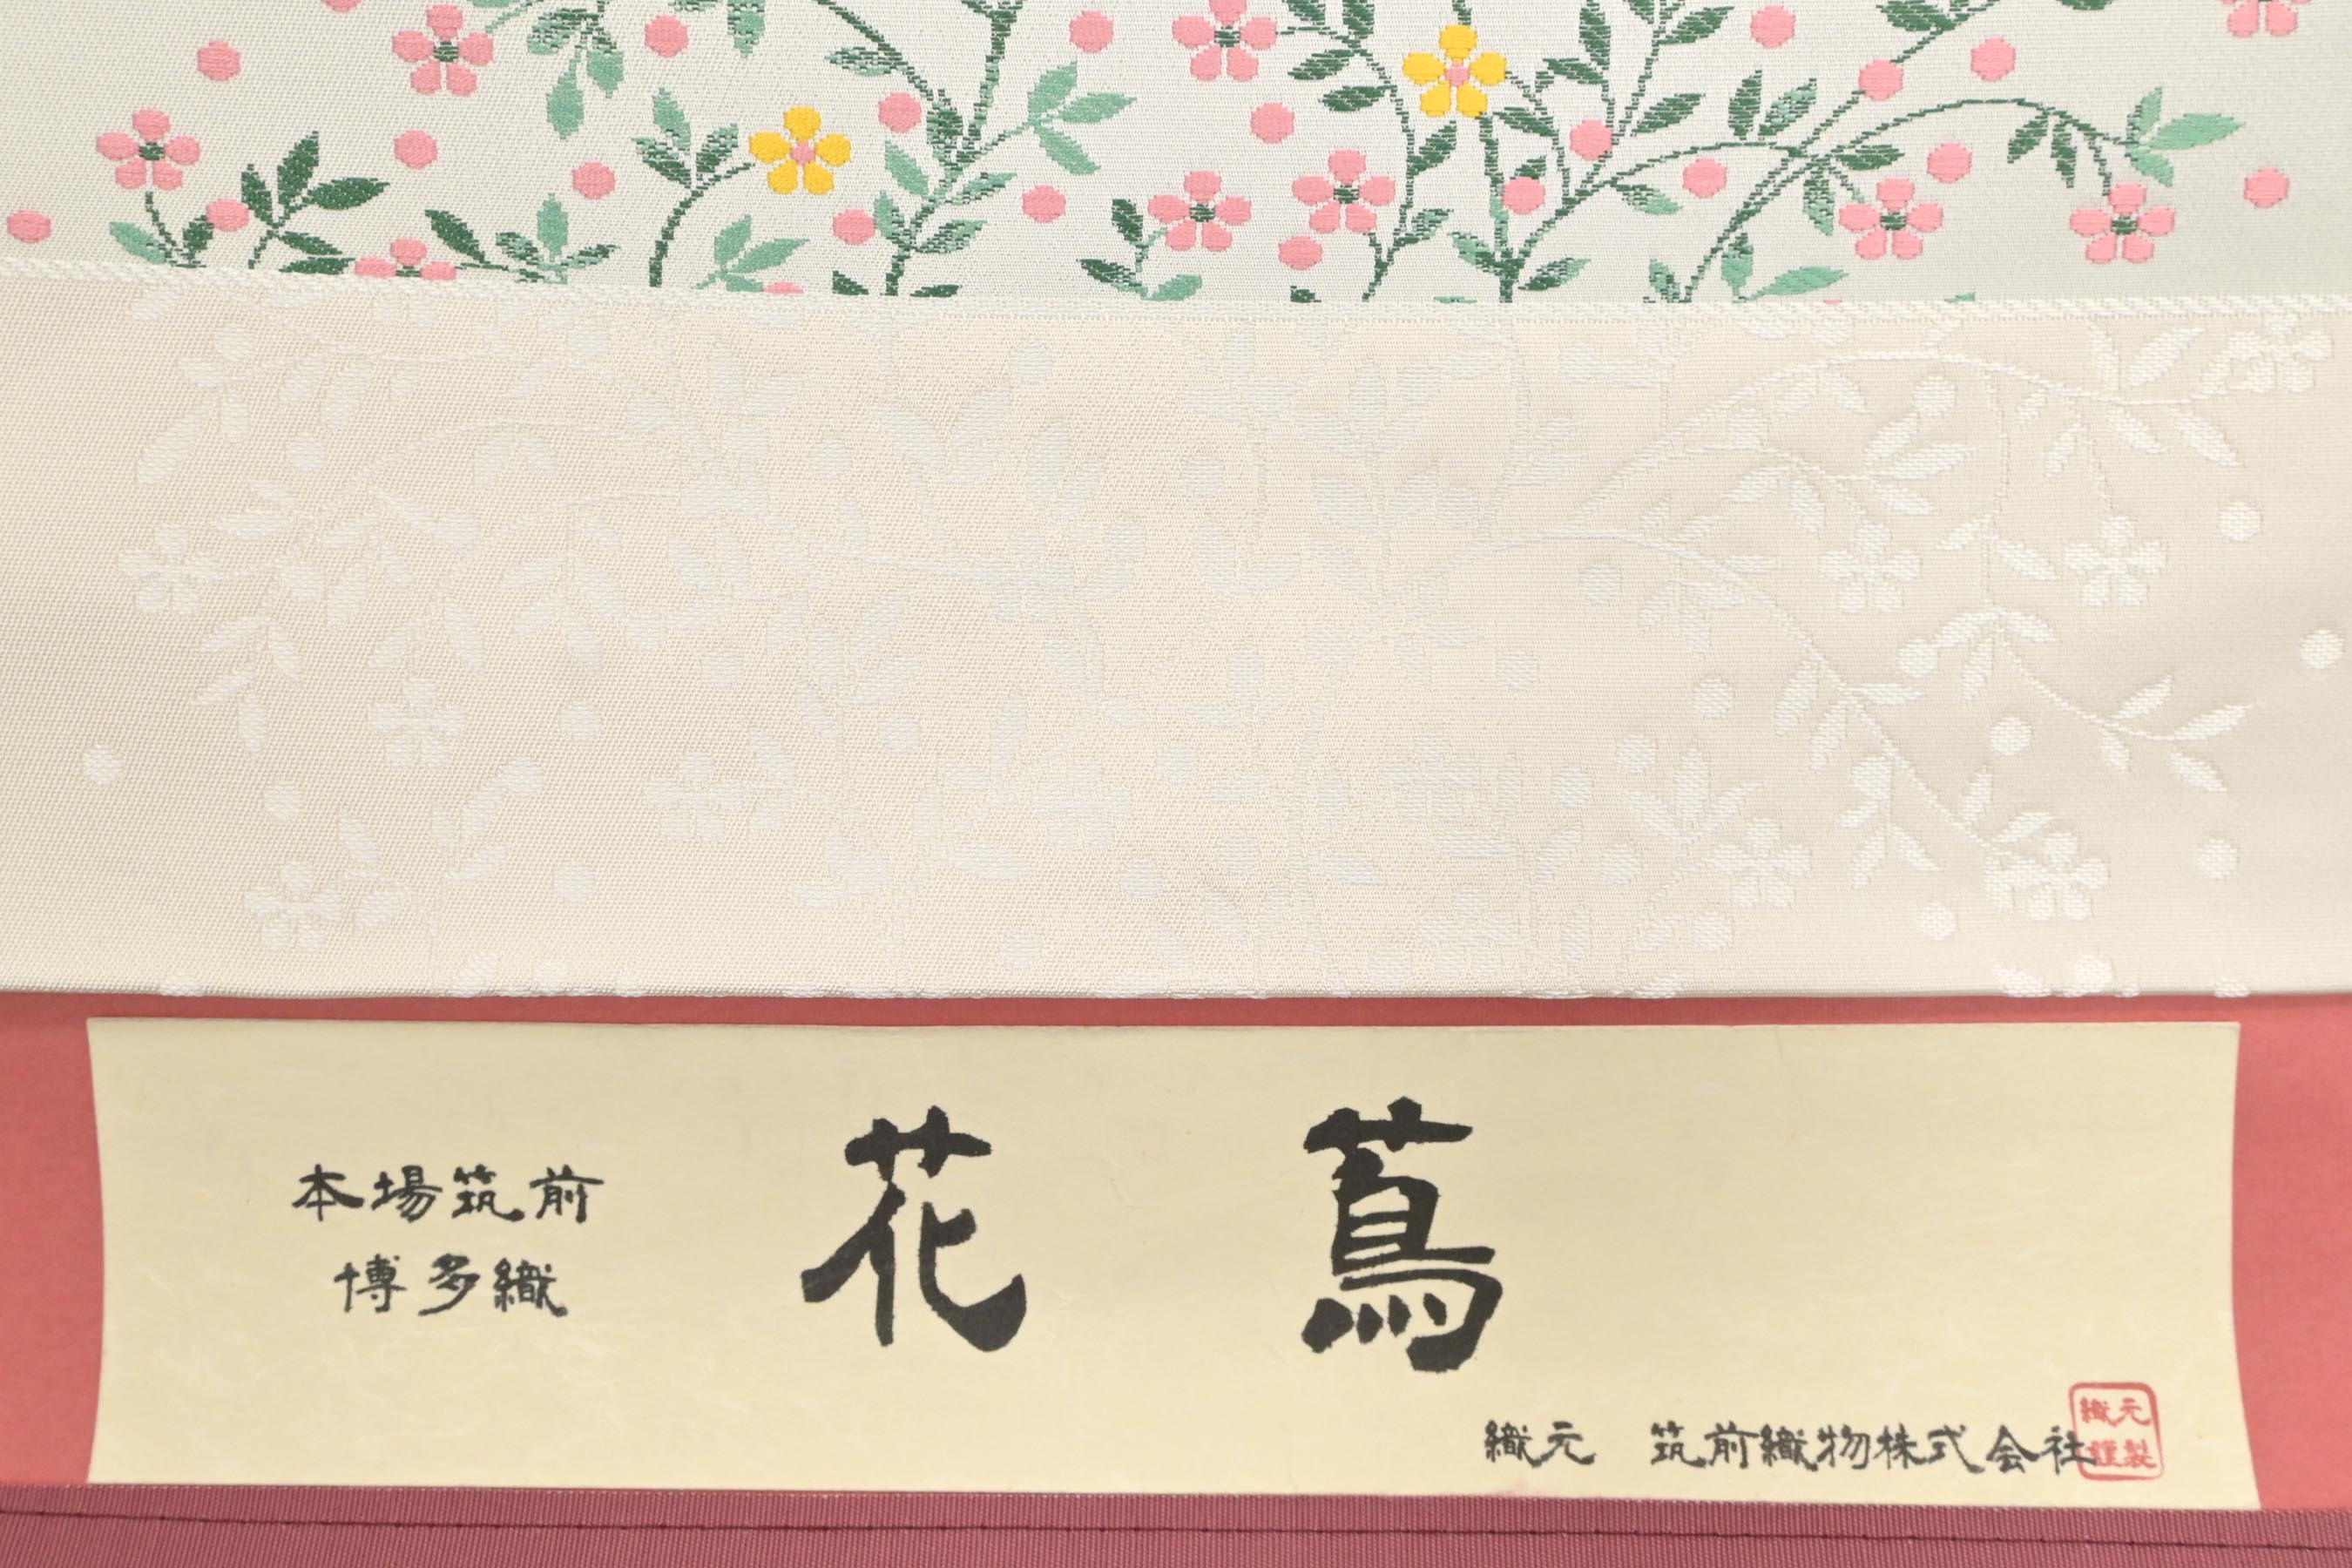 本場筑前
博多織
花 蔦
織元 筑前織物株式会社
織元
謹製